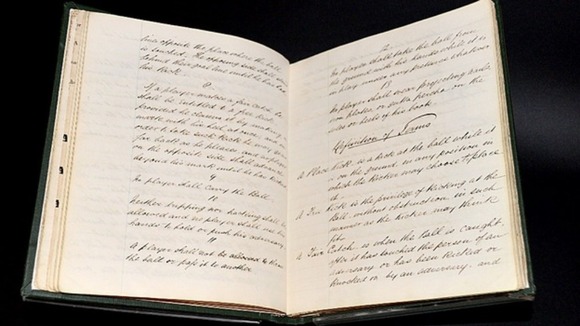 line opposite the place where the ball
is touched. The opposing side shall
behind their goal line until he has had
his kick.
If a player makes a fair catch he
shall be entitled to a free kick
provided he claims it by making a
mark with his heel at once, and in
order to take such kick he may go as
far back as he pleases, and no player
on the opposite side shall advance
beyond his mark until he has kicked
9
No player shall carry the Ball
10
Neither tripping nor hacking shall be
allowed and no player shall use his
hands to hold or push his adversary
11
A player shall not be allowed to throw
the ball or pass it to another
12
No player shall take the ball from
the ground with his hands while it is
in play under any pretence whatever
13
No player shall wear projecting nails,
iron plates, or gutta percha on the
soles or heels of his boots.
Definition of Terms
A Place Kick is a kick at the ball while it
is on the ground, in any position in
which the Kicker may choose to place
it.
A Free Kick is the privilege of kicking at the
Ball, without obstruction, in such
manner as the kicker may think
fit.
A Fair Catch is when the Ball is caught,
after it has touched the person of an
adversary or has been kicked or
knocked on by an adversary, and